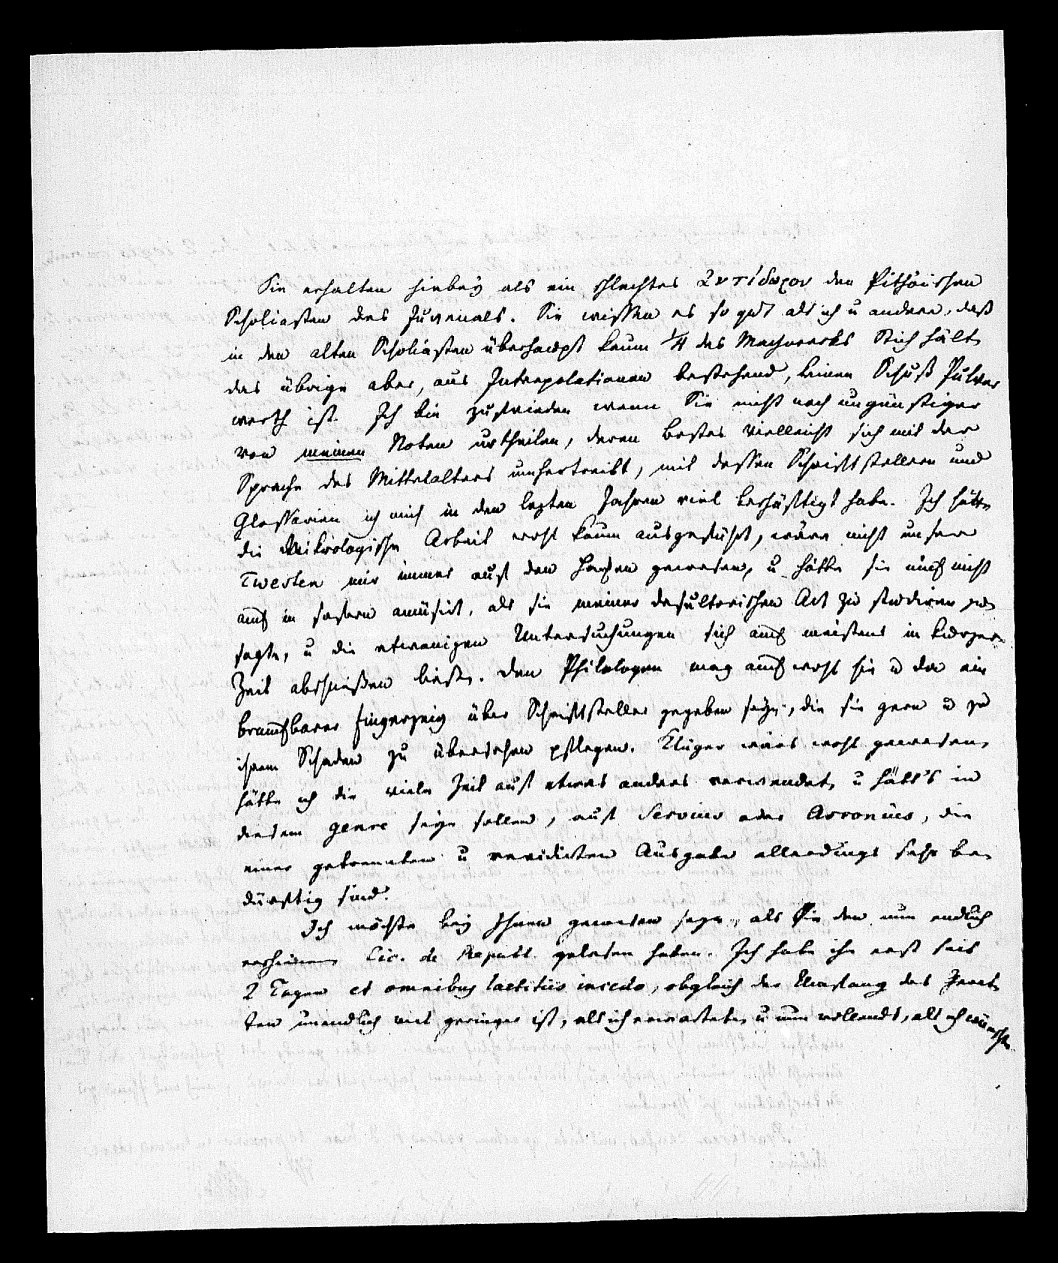 Sie erhalten hierbey als ein schlechtes ἀντίδωρον den Pithöischen
Scholiasten des Juvenals. Sie wissen es so gut als ich u andere, daß
in den alten Scholiasten überhaupt kaum 1/4 des Machwerks Stich hält,
das übrige aber, aus Interpolationen bestehend, keinen Schuß Pulver
werth ist. Ich bin zufrieden wenn Sie nicht noch ungünstiger
von meinen Noten urtheilen, deren bestes vielleicht sich mit der
Sprache des Mittelalters umhertreibt, mit dessen Schriftstellern und
Glossarien ich mich in den lezten Jahren viel beschäftigt habe. Ich hätte
die mikrologische Arbeit wohl kaum ausgeführt, wäre nicht unser
Twesten mir immer auf den Hacken gewesen, u hätte sie mich nicht
auch in sofern amüsirt, als sie meiner desultorischen Art zu studiren zu-
sagte, u die etwanigen Untersuchungen sich auch meistens in kurzer
Zeit abschließen ließen. Den Philologen mag auch wohl hie u da ein
brauchbarer Fingerzeig über Schriftsteller gegeben seyn, die sie gern u zu
ihrem Schaden zu übersehen pflegen. Klüger wär's wohl gewesen,
hätte ich die viele Zeit auf etwas anders verwendet, u hätt's in
diesem genre seyn sollen, auf Servius oder Acronius, die
einer getrennten u revidirten Ausgabe allerdings sehr be-
dürftig sind.
Ich möchte bey Ihnen gewesen seyn, als Sie den nun endlich
erschienenen Cic. de Republ. gelesen haben. Ich habe ihn erst seit
2 Tagen et omnibus laetitiis incedo, obgleich der Umfang des Geret-
teten unendlich viel geringer ist, als ich erwartete, u nun vollends, als ich wünschte.